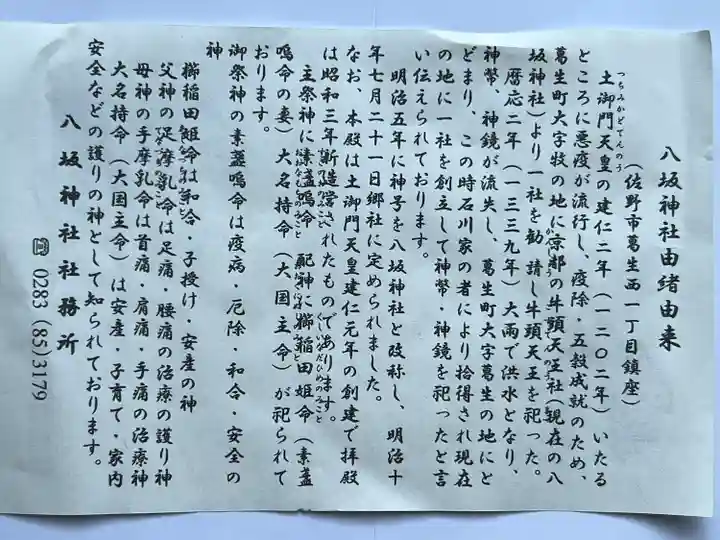 八坂神社由緒由来
(佐野市葛生西一丁目鎮座)
土御門天皇の建仁二年(一二〇二年)いたる
つちみかどてんのう
ところに悪疫が流行し、疫除・五穀成就のため、
葛生町大字牧の地に京都の牛頭天王社(現在の八
坂神社)より一社を勧請し牛頭天王を祀った。
暦応二年(一三三九年)大雨で洪水となり、
神幣、神鏡が流失し、葛生町大字葛生の地にと
どまり、この時石川家の者により拾得され現在
の地に一社を創立して神幣・神鏡を祀ったと言
い伝えられております。
明治五年に神号を八坂神社と改称し、明治十
年七月二十一日郷社に定められました。
なお、本殿は土御門天皇建仁元年の創建で拝殿
は昭和三年新造営されたものであります。
主祭神に素盞嗚命、配神に櫛稲田姫命(素盞
嗚命の妻)大名持命(大国主命)が祀られて
おります。
御祭神の素盞嗚命は疫病・厄除・和合・安全の
神
櫛稲田姫命は和合・子授け・安産の神
父神の足摩乳命は足痛・腰痛の治療の護り神
母神の手摩乳命は首痛・肩痛・手痛の治療神
大名持命(大国主命)は安産・子育て・家内
安全などの護りの神として知られております。
八坂神社社務所
☎ 0283(85)3179